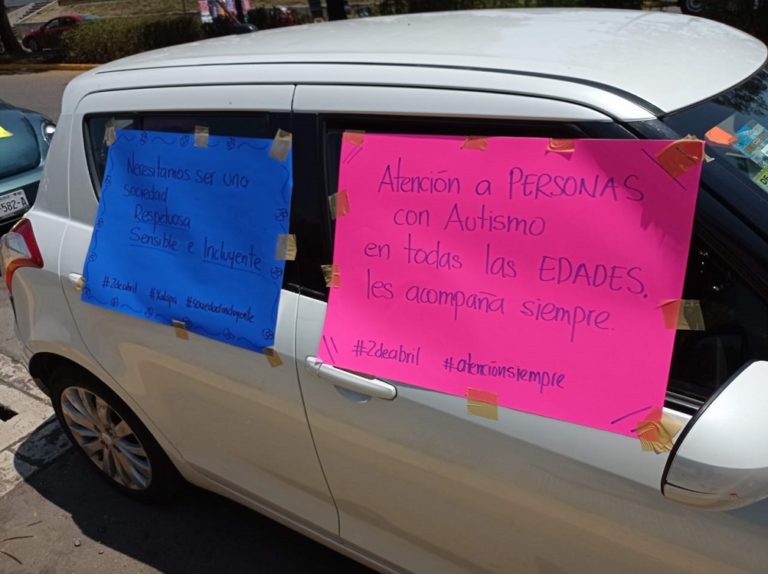 Necesitamos ser una
sociedad
Respetuosa
Sensible e Incluyente
#2deabril #Xalapa #sociedadincluyente
Atención a PERSONAS
con Autismo
en todas las EDADES.
les acompaña siempre.
#2deabril #atenciónsiempre
582-A